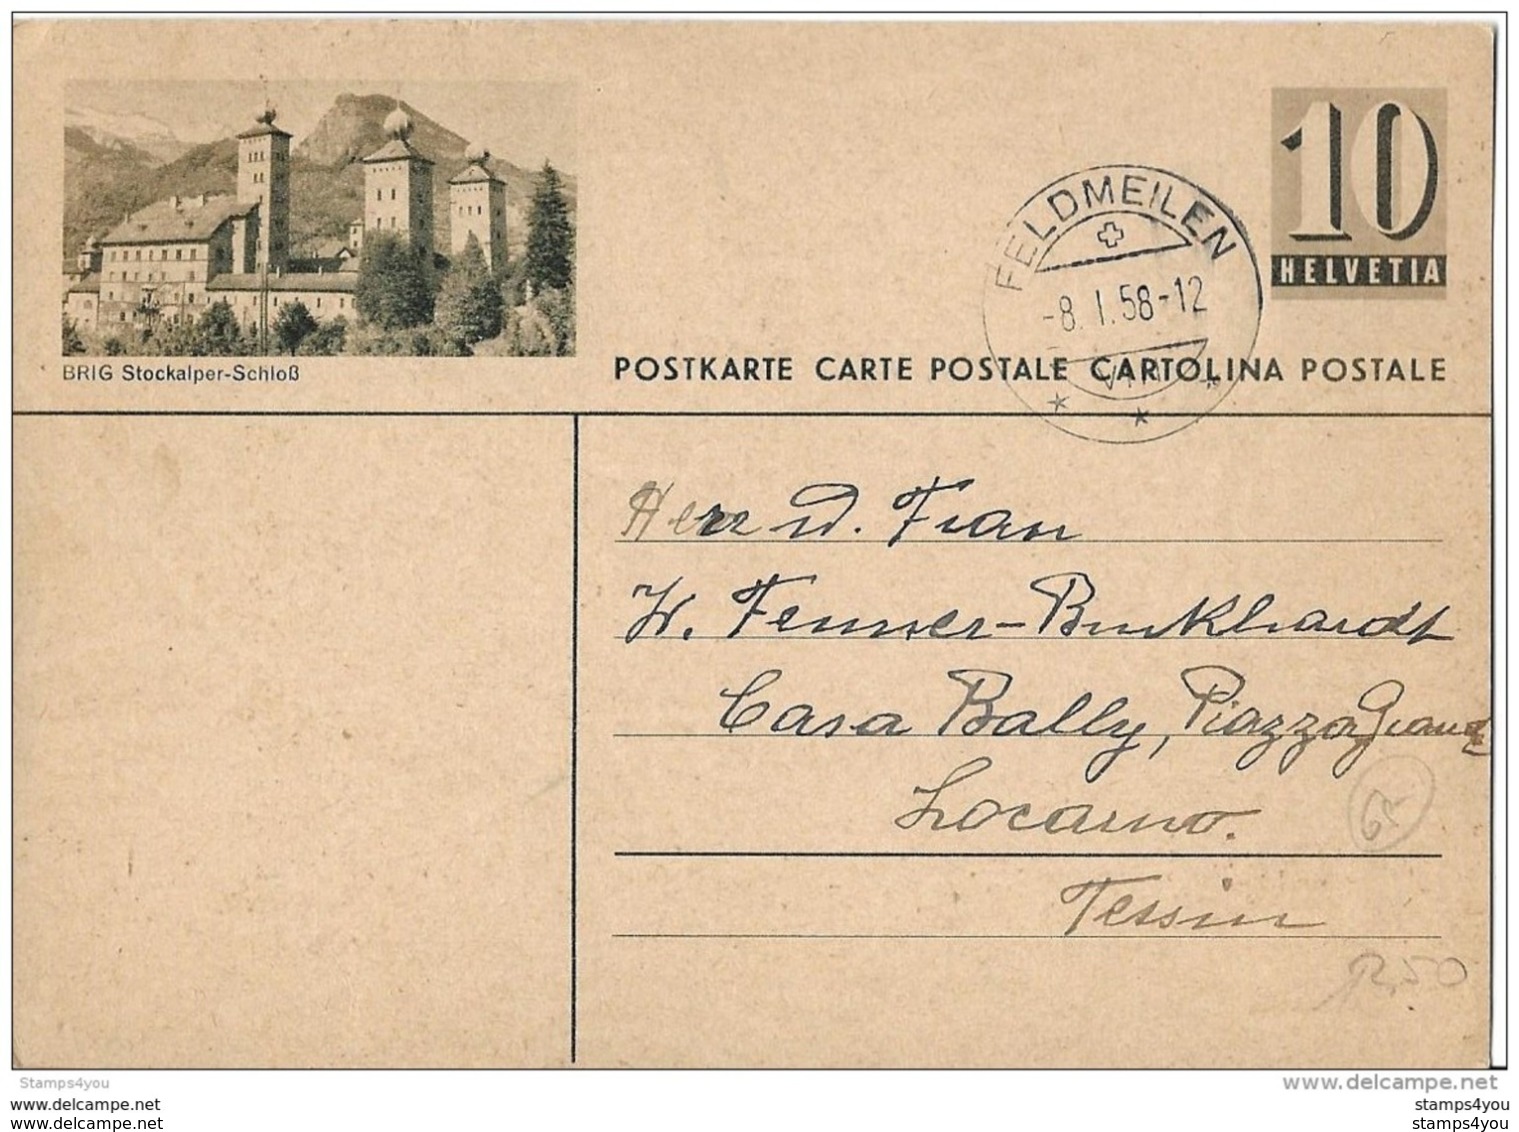 10
HELVETIA
FELDMEILEN
-8. I. 58-12
BRIG Stockalper-Schloß
POSTKARTE CARTE POSTALE CARTOLINA POSTALE
Herr u. Frau
W. Fenner-Burkhardt
Casa Bally, Piazza Grande
Locarno.
Tessin
65-
Stamps4you
www.delcampe.net
www.delcampe.net
stamps4you
www.delcampe.net
stamps4you